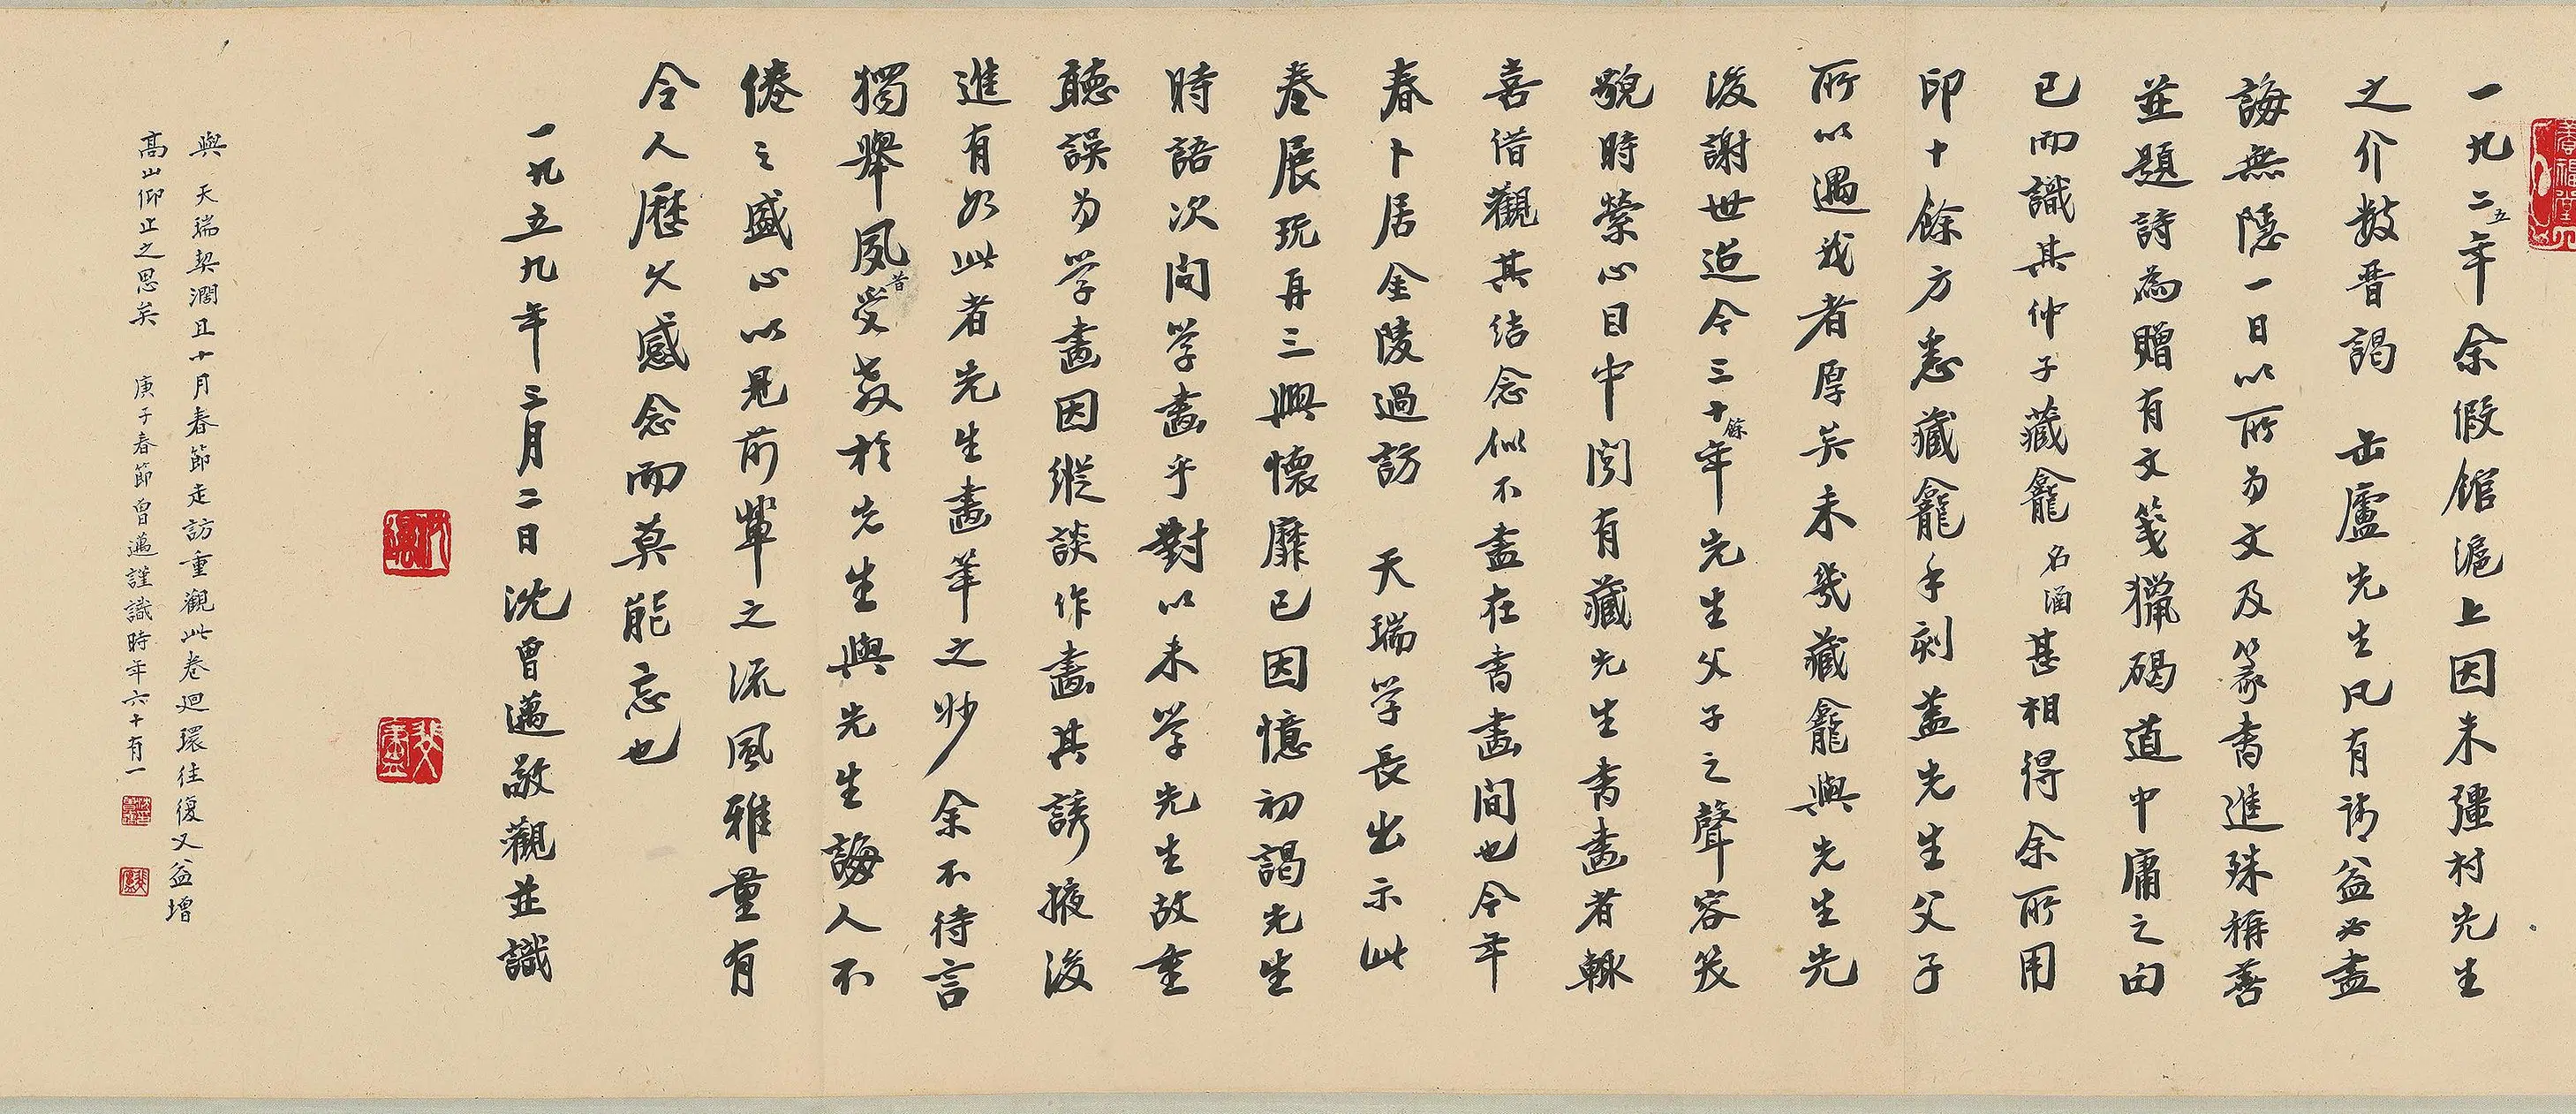 一九二五年余假館滬上因朱彊村先生
之介數晉謁 缶廬先生凡有請益必盡
誨無隱一日以所为文及篆書進殊稱善
並題詩為贈有文箋獵碣道中庸之句
已而識其仲子藏龕名涵甚相得余所用
印十餘方悉藏龕手刻蓋先生父子
所以遇我者厚矣未幾藏龕與先生先
後謝世迨今三十餘年先生父子之聲容笑
貌時縈心目中聞有藏先生書畫者輒
喜借觀其結念似不盡在書畫間也今年
春卜居金陵過訪 天瑞学長出示此
卷展玩再三興懷靡已因憶初謁先生
時語次問学畫乎對以未学先生故重
聽誤为学畫因縱談作畫其誘掖後
進有如此者先生畫筆之妙余不待言
獨舉夙昔受教於先生與先生誨人不
倦之盛心以見前輩之流風雅量有
令人歷久感念而莫能忘也
一九五九年三月二日沈曾邁敬觀並識
與 天瑞契濶且十月春節走訪重觀此卷迴環往復又益增
高山仰止之思矣 庚子春節曾邁謹識時年六十有一